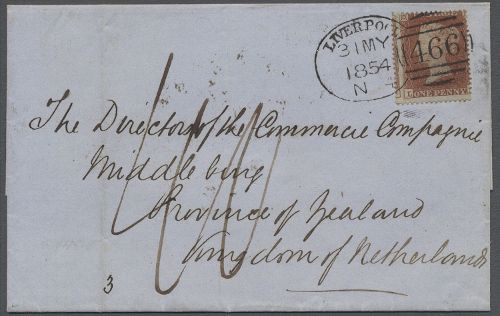 LIVERPOO
31 MY
1854
N
466
ONE PENNY
The Director of the Commercie Compagnie
Middelburg
Province of Zealand
Kingdom of Netherlands
3